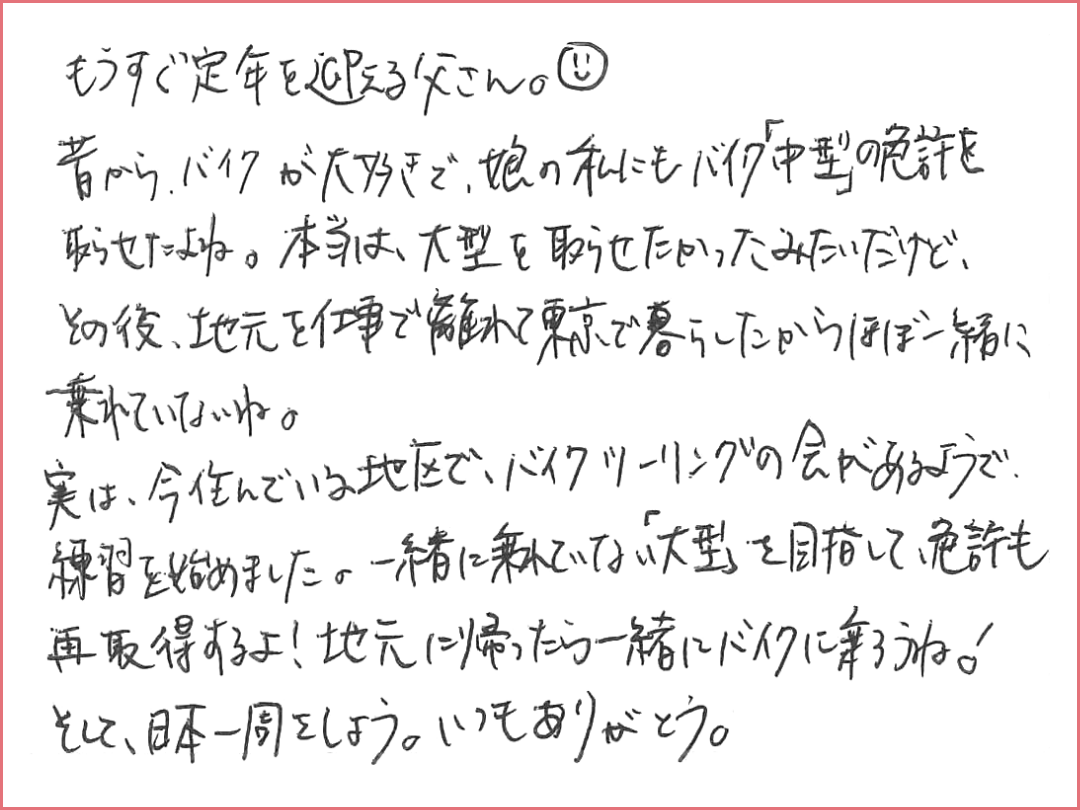 もうすぐ定年を迎える父さん。
昔から、バイクが大好きで、娘の私にもバイク「中型」の免許を
取らせたよね。本当は、大型を取らせたかったみたいだけど、
その後、地元を仕事で離れて東京で暮らしたからほぼ一緒に
乗れていないね。
実は、今住んでいる地区で、バイクツーリングの会があるようで、
練習を始めました。一緒に乗れていない「大型」を目指して、免許も
再取得するよ！地元に帰ったら一緒にバイクに乗ろうね！
そして、日本一周をしよう。いつもありがとう。